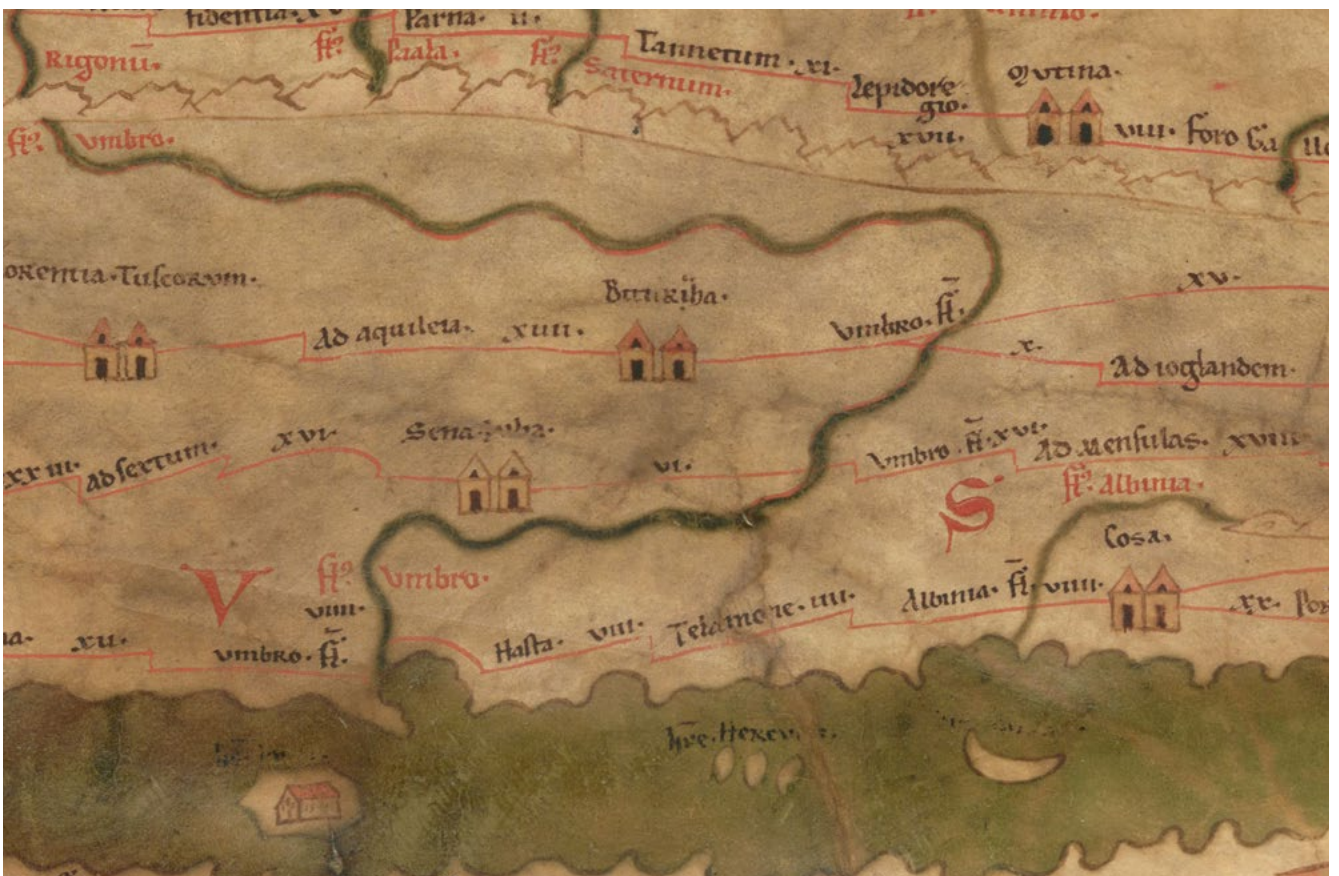 fidentia·xv
Parna· ii·
Rigonū·
fl̄?
Paala·
fl̄?
Tannetum·xi·
Saternum·
Lepidore
gio·
xvii·
Mutina·
viiii· foro Ga llo
fl̄? Vmbro·
orentia·Tuscorum·
Bituriha·
Ad aquileia· xiiii·
Vmbro· fl̄·
xv·
x· Ad ioglandem·
xxiii· ad sextum· xvi·
Sena
vi·
Vmbro· fl̄·xvi· Ad Mensulas· xviii
S
fl̄? Albinia·
Cosa·
V
fl̄? Vmbro·
viiii·
xii· vmbro· fl̄·
Hasta· viii· Telamone·iiii·
Albinia· fl̄·viiii·
xx· Por